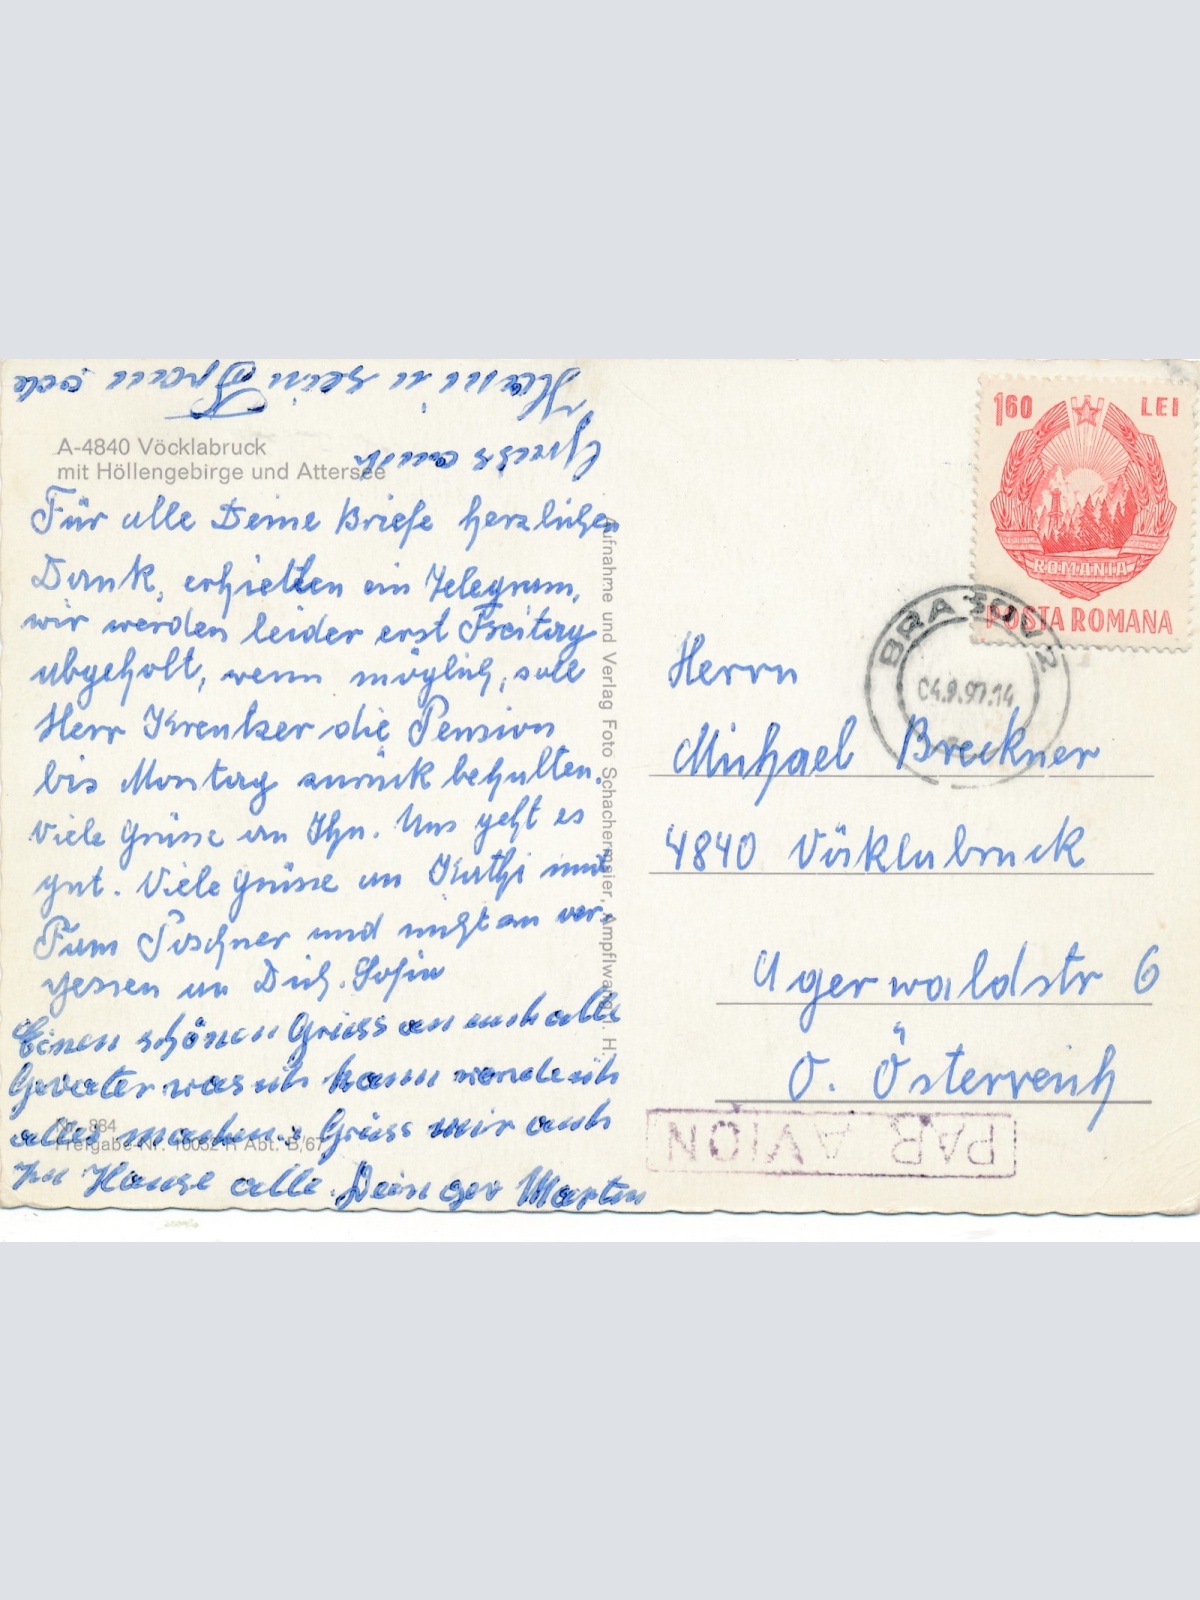 A-4840 Vöcklabruck
mit Höllengebirge und Attersee
Für alle Deine Briefe herzlichen
Dank, erhielten ein Telegram,
wir werden leider erst Freitag
abgeholt, wenn möglich, soll
Herr Kreutzer die Pension
bis Montag zurück behalten.
Viele Grüsse an Ihn. Uns geht es
gut. Viele Grüsse an Kathi und
Fam Poschner und nicht an ver-
gessen an Dich. Sofia
Einen schönen Griess an euch alle
Gevater was ich kann werde ich
alles machen. Griess mir auch
zu Hause alle. Dein gev Martin
Griess auch
seine Frau
Nr. 884
Freigabe-Nr. 10052 R Abt. B/67
Aufnahme und Verlag Foto Schachermaier, Ampflwang a. H.
1,60 LEI
ROMANIA
POSTA ROMANA
BRAȘOV 2
04.9.97.14
Herrn
Michael Breckner
4840 Vöklabruck
Ugerwaldstr 6
O. Österreich
PAR AVION